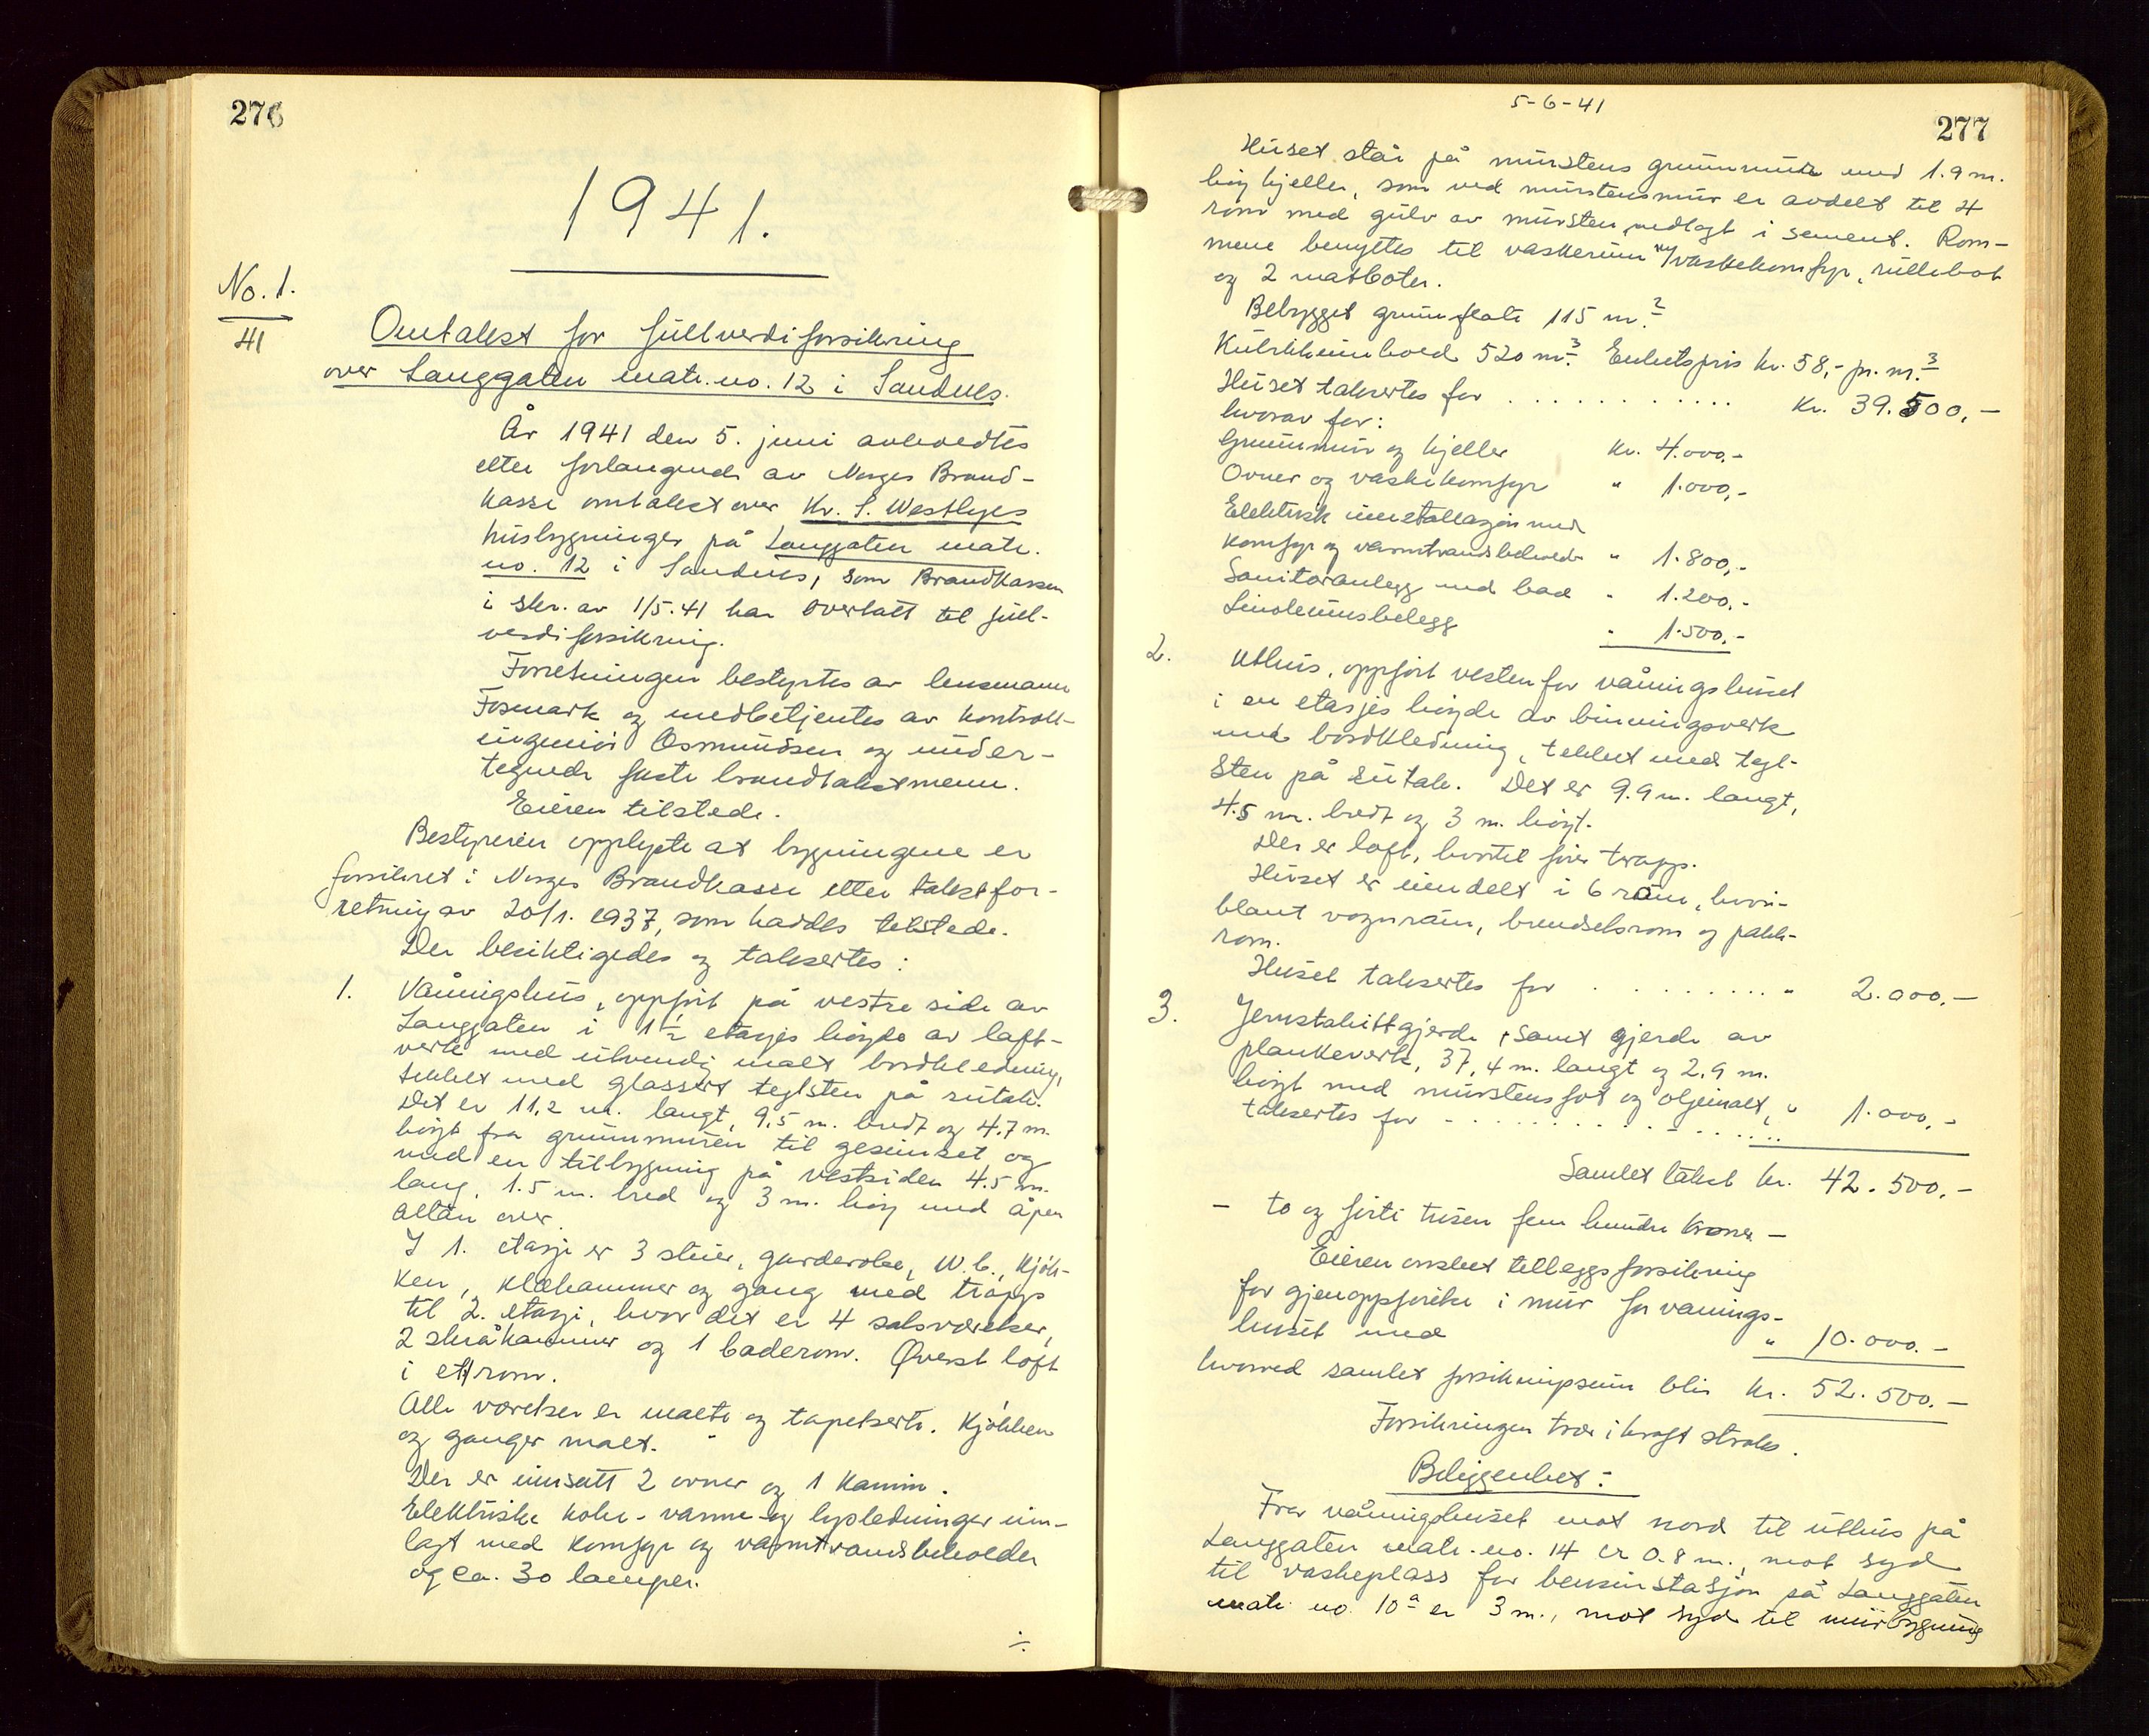 276
1941.
No. 1.
41
Omtakst for fullverdiforsikring
over Langgaten matr. no. 12 i Sandnes.
År 1941 den 5. juni avholdtes
etter forlangende av Norges Brand-
kasse omtakst over Kr. S. Westlyes
husbygninger på Langgaten matr.
no. 12 i Sandnes, som Brandkassen
i skr. av 1/5.41 har overtatt til full-
verdiforsikring.
Forretningen bestyrtes av lensmann
Fosmark og medbetjentes av kontroll-
ingeniör Osmundsen og under-
tegnede faste brandtakstmenn.
Eieren tilstede.
Bestyreren opplyste at bygningene er
forsikret i Norges Brandkasse etter takstfor-
retning av 20/1. 1937, som haddes tilstede.
Der besiktigedes og taksertes:
1. Våningshus, oppfört på vestre side av
Langgaten i 1 1/2 etasjes höyde av laft-
verk med utvendig malt bordkledning,
tekket med glassert teglsten på sutak.
Det er 11,2 m. langt, 9,5 m. bredt og 4.7 m.
höyt fra grunnmuren til gesimset og
med en tilbygning på vestsiden 4.5 m.
lang, 1.5 m. bred og 3 m. höy med åpen
altan over.
I 1. etasje er 3 stuer, garderobe, W.C., kjök-
ken, klækammer og gang med trapp
til 2. etasje, hvor det er 4 soveværelser,
2 skråkammer og 1 baderom. Øverst loft
i ett rom.
Alle værelser er malte og tapetserte. Kjökken
og ganger malt.
Der er innsatt 2 ovner og 1 kamin.
Elektriske koke- varme- og lysledninger inn-
lagt med komfyr og varmtvandsbeholder
og ca. 30 lamper.
÷
5-6-41
277
Huset står på murstens grunnmur med 1.9 m.
höy kjeller, som ved murstensmur er avdelt til 4
rom med gulv av mursten nedlagt i sement. Rom-
mene benyttes til vaskerum m/vaskekomfyr, rullebod
og 2 matboder.
Bebygget grunnflate 115 m.2
Kubikkinnhold 520 m.3 Enhetspris kr. 58,- pr. m.3
Huset taksertes for . . . . . . . . . . . kr. 39.500,-
hvorav for:
Grunnmur og kjeller kr. 4.000,-
Ovner og vaskekomfyr " 1.000,-
Elektrisk innstallasjon med
komfyr og varmtvandsbeholder " 1.800,-
Sanitæranlegg med bad " 1.200,-
Linoleumsbelegg " 1.500,-
2. Uthus, oppfört vesten for våningshuset
i en etasjes höyde av binningsverk
med bordkledning, tekket med tegl-
sten på sutak. Det er 9.9 m. langt,
4.5 m. bredt og 3 m. höyt.
Der er loft, hvortil förer trapp.
Huset er inndelt i 6 rom, hvori-
blant vognrom, brendselsrom og pakk-
rom.
Huset taksertes for . . . . . . . . . " 2.000,-
3. Jernstakittgjerde, samt gjerde av
plankeverk, 37,4 m. langt og 2,9 m.
höyt med murstensfot og oljemalt,
taksertes for . . . . . . . . . . . " 1.000,-
Samlet takst kr. 42.500,-
- to og förti tusen fem hundre kroner -
Eieren önsket tilleggsforsikring
for gjenoppförelse i mur for vånings-
huset med " 10.000.-
hvorved samlet forsikringssum blir kr. 52.500.-
Forsikringen trær i kraft straks.
Beliggenhet:
Fra våningshuset mot nord til uthus på
Langgaten matr. no. 14 er 0.8 m., mot syd
til vaskeplass for bensinstasjon på Langgaten
matr. no. 10a er 3 m., mot syd til murbygning